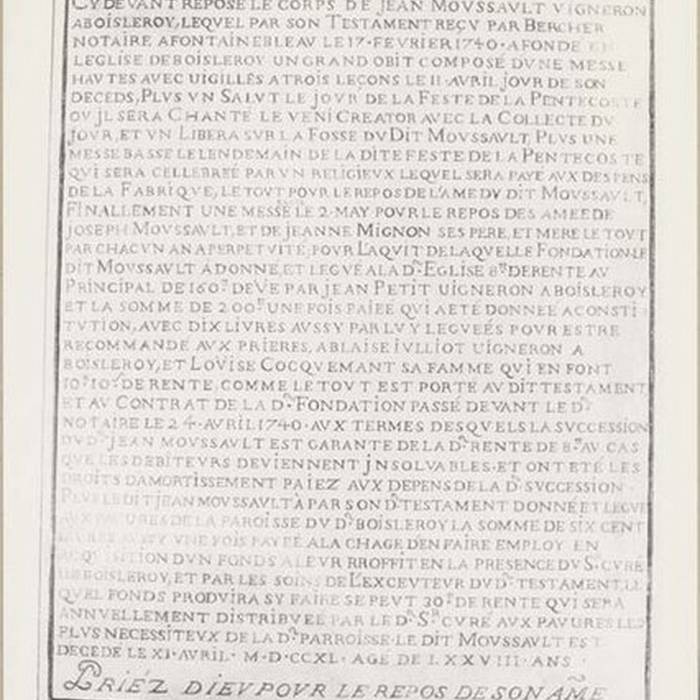 CY DEVANT REPOSE LE CORPS DE JEAN MOVSSAVLT VIGNERON
ABOISLEROY, LEQVEL PAR SON TESTAMENT REÇV PAR BERCHER
NOTAIRE AFONTAINEBLEAV LE 17·FEVRIER 1740·AFONDE EN
LEGLISE DE BOISLEROY UN GRAND OBIT COMPOSÉ DVNE MESSE
HAVTES AVEC UIGILLES ATROIS LEÇONS LE 11·AVRIL JOVR DE SON
DECEDS, PLVS VN SALVT LE JOVR DE LA FESTE DE LA PENTECOSTE
OV JL SERA CHANTÉ LE VENI CREATOR AVEC LA COLLECTE DV
JOVR, ET VN LIBERA SVR LA FOSSE DV DIT MOVSSAVLT, PLVS UNE
MESSE BASSE LE LENDEMAIN DE LA DITE FESTE DE LA PENTECOSTE
QVI SERA CELLEBRÉE PAR VN RELIGIEVX LEQVEL SERA PAYÉ AVX DESPENS
DE LA FABRIQVE, LE TOVT POVR LE REPOS DE L'AME DV DIT MOVSSAVLT,
FINALLEMENT UNE MESSE LE 2·MAY POVR LE REPOS DES AMES DE
JOSEPH MOVSSAVLT, ET DE JEANNE MIGNON SES PERE, ET MERE LE TOVT
PAR CHACVN AN APERPETVITÉ, POVR L'AQVIT DE LAQVELLE FONDATION LE
DIT MOVSSAVLT A DONNÉ, ET LEGVÉ ALA D^te EGLISE 8^tt DE RENTE AV
PRINCIPAL DE 160^tt DEVE PAR JEAN PETIT UIGNERON A BOISLEROY
ET LA SOMME DE 200^tt UNE FOIS PAIÉE QVI AETÉ DONNÉE A CONSTI
TVTION, AVEC DIX LIVRES AVSSY PAR LVY LEGVÉES POVR ESTRE
RECOMMANDÉ AVX PRIERES, ABLAISE IVLLIOT UIGNERON A
BOISLEROY, ET LOVISE COCQVEMANT SA FAMME QVI EN FONT
10^tt 10^s DE RENTE, COMME LE TOVT EST PORTÉ AV DIT TESTAMENT
ET AV CONTRAT DE LA D^te FONDATION PASSÉ DEVANT LE D^t
NOTAIRE LE 24·AVRIL 1740·AVX TERMES DESQVELS LA SVCCESSION
DV D^t JEAN MOVSSAVLT EST GARANTE DE LA D^te RENTE DE 8^tt AV CAS
QVE LES DEBITEVRS DEVIENNENT JNSOLVABLES·ET ONT ETÉ LES
DROITS DAMORTISSEMENT PAIEZ AVX DEPENS DE LA D^te SVCCESSION
PLVS LEDIT JEAN MOVSSAVLT À PAR SON D^t TESTAMENT DONNÉ ET LEGVÉ
AVX PAUVRES DE LA PAROISSE DV D^t BOISLEROY LA SOMME DE SIX CENT
LIVRES AVSSY UNE FOIS PAYÉE ALA CHAGE DEN FAIRE EMPLOY EN
ACQVISITION DVN FONDS ALEVR RROFFIT EN LA PRESENCE DV S^r CVRÉ
DE BOISLEROY, ET PAR LES SOINS DE L'EXCEVTEVR DV D^t TESTAMENT, LE
QVEL FONDS PRODVIRA SY FAIRE SE PEVT 30^tt DE RENTE QVI SERA
ANNVELLEMENT DISTRIBVÉE PAR LE D^t S^r CVRÉ AVX PAVURES LES
PLVS NECESSITEVX DE LA D^te PARROISSE·LE DIT MOVSSAVLT EST
DECEDÉ LE XI·AVRIL·M·D·CCXL·AGÉ DE LXXVIII·ANS·
PRIÉZ DIEV POVR LE REPOS DE SON AME